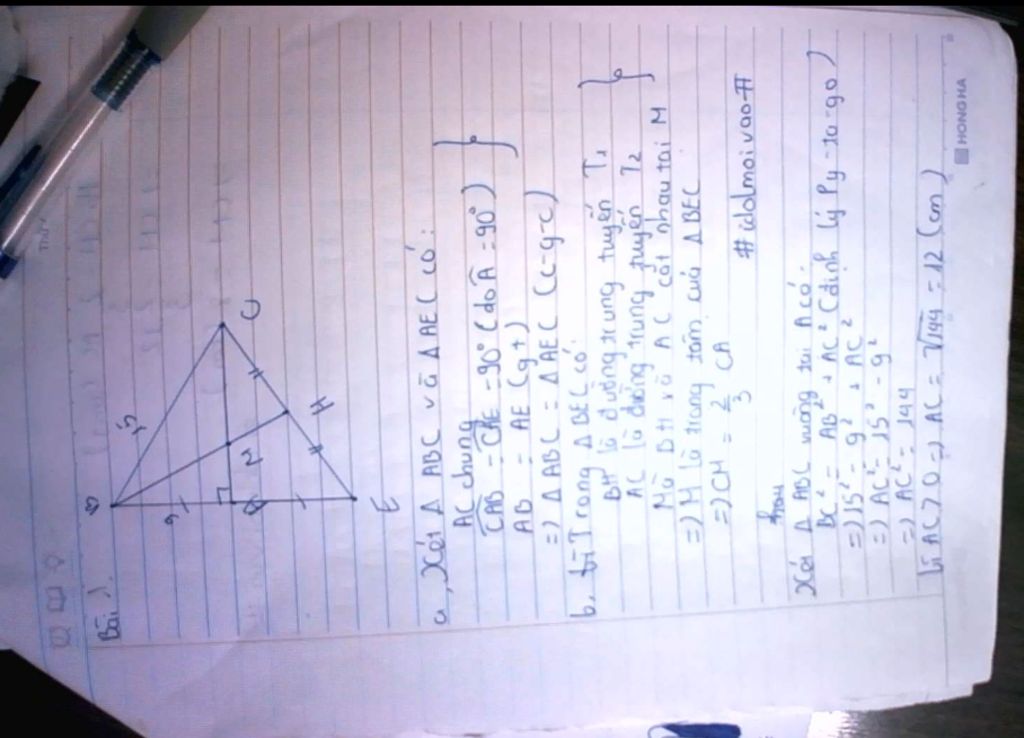 Thứ
Bài 1.
B
15
9
M
C
A
H
E
a, Xét Δ ABC và Δ AEC có:
AC chung
CAB = CAE = 90° (do A = 90°)
AB = AE (gt)
=) Δ ABC = Δ AEC (c-g-c)
b, Trong Δ BEC có:
BH là đường trung tuyến T1
AC là đường trung tuyến T2
Mà BH và AC cắt nhau tại M
=) M là trọng tâm của Δ BEC
=) CM = 2/3 CA
#idolmoivao-A
Xét Δ ABC vuông tại A có:
BC² = AB² + AC² (định lý Py-ta-go)
=) 15² = 9² + AC²
=) AC² = 15² - 9²
=) AC² = 144
Vì AC > 0 =) AC = √144 = 12 (cm)
HONG HA